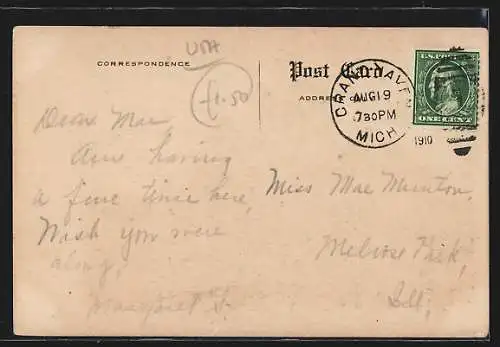 USA
CORRESPONDENCE
Post Card
£1.50
ADDRESS ONLY
GRAND HAVEN
AUG 19
730 PM
MICH.
1910
U.S. POSTAGE
ONE CENT
Dear Mae
Am having
a fine time here,
Wish you were
along,
Margaret S.
Miss Mae
Melrose Park,
Ill,